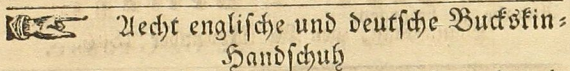 Aecht englische und deutsche Buckskin=
Handschuh